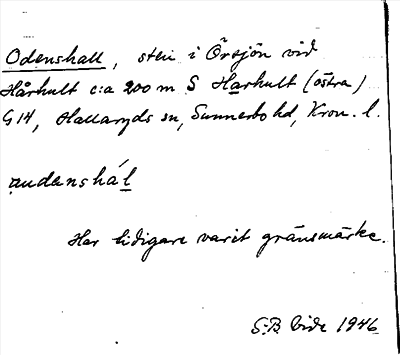 Odenshall, sten i Örsjön vid
Hårhult c:a 200 m S Harhult (östra)
G14, Hallaryds sn, Sunnerbo hd, Kron. l.
audenshál
Har tidigare varit gränsmärke.
S.B. Vide 1946